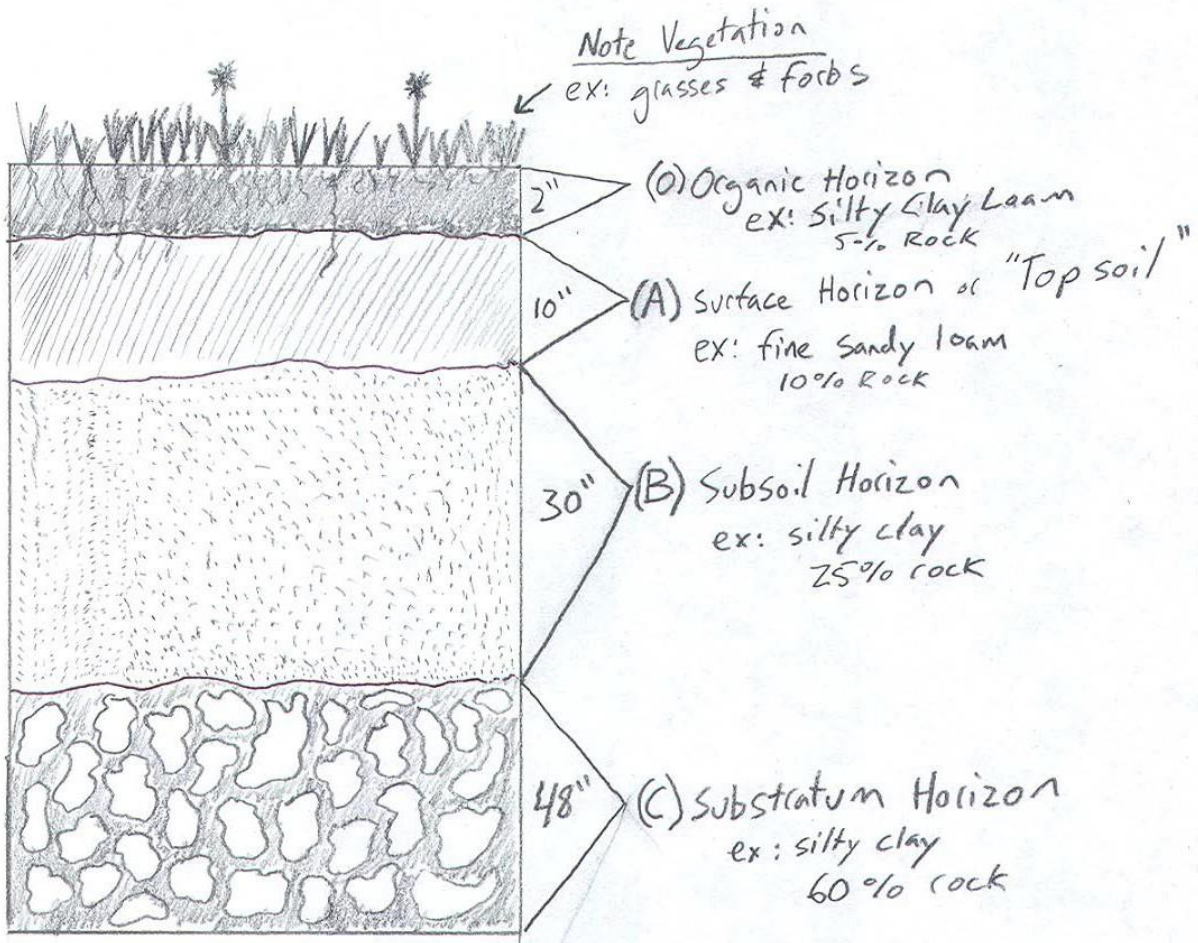 Note Vegetation
ex: grasses & Forbs
2"
(O) Organic Horizon
ex: Silty Clay Loam
5% Rock
10"
(A) Surface Horizon or "Top soil"
ex: fine sandy loam
10% Rock
30"
(B) Subsoil Horizon
ex: silty clay
25% rock
48"
(C) Substratum Horizon
ex: silty clay
60% rock